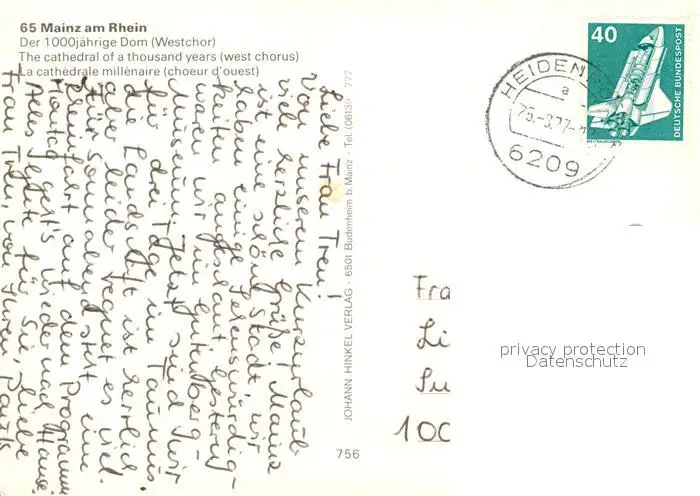 65 Mainz am Rhein
Der 1000jährige Dom (Westchor)
The cathedral of a thousand years (west chorus)
La cathédrale millénaire (choeur d'ouest)
Liebe Frau Treu!
Von unserem Kurzurlaub
viele herzliche Grüße. Mainz
ist eine schöne Stadt, wir
haben einige Sehenswürdig-
keiten angeschaut, gestern
waren wir im Gutenberg-
Museum. Jetzt sind wir
für drei Tage im Taunus
die Landschaft ist herrlich
aber leider regnet es viel.
Für Sonnabend steht eine
Rheinfahrt auf dem Programm
Montag geht's wieder nach Hause.
Alles Gute für Sie, liebe
Frau Treu, von Ihren
JOHANN HINKEL VERLAG · 6501 Budenheim b. Mainz · Tel. 777
756
HEIDEN
a
25.-3.77
6209
40
DEUTSCHE BUNDESPOST
WELTRAUMLABOR
Fra
Li
Su
100
privacy protection
Datenschutz